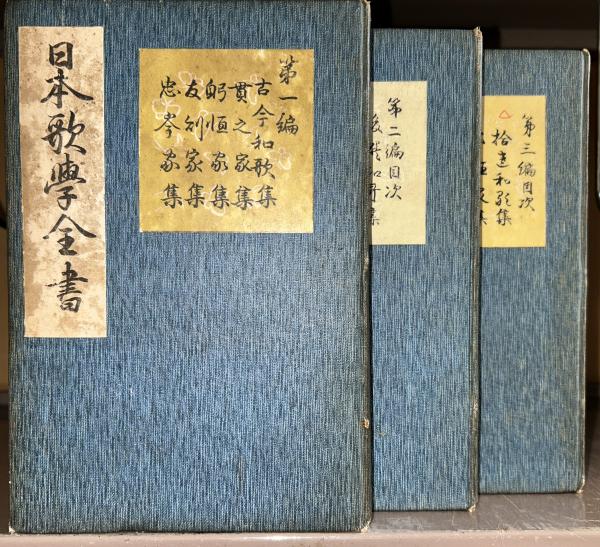 日本歌學全書
第一編
古今和歌集
貫之家集
躬恒家集
友則家集
忠岑家集
第二編目次
後撰和歌集
第三編目次
拾遺和歌集
家集